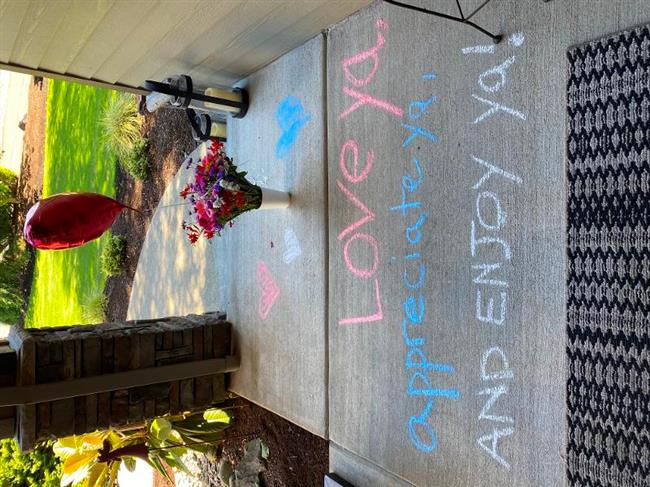 Love ya,
appreciate ya,
AND ENJOY ya!